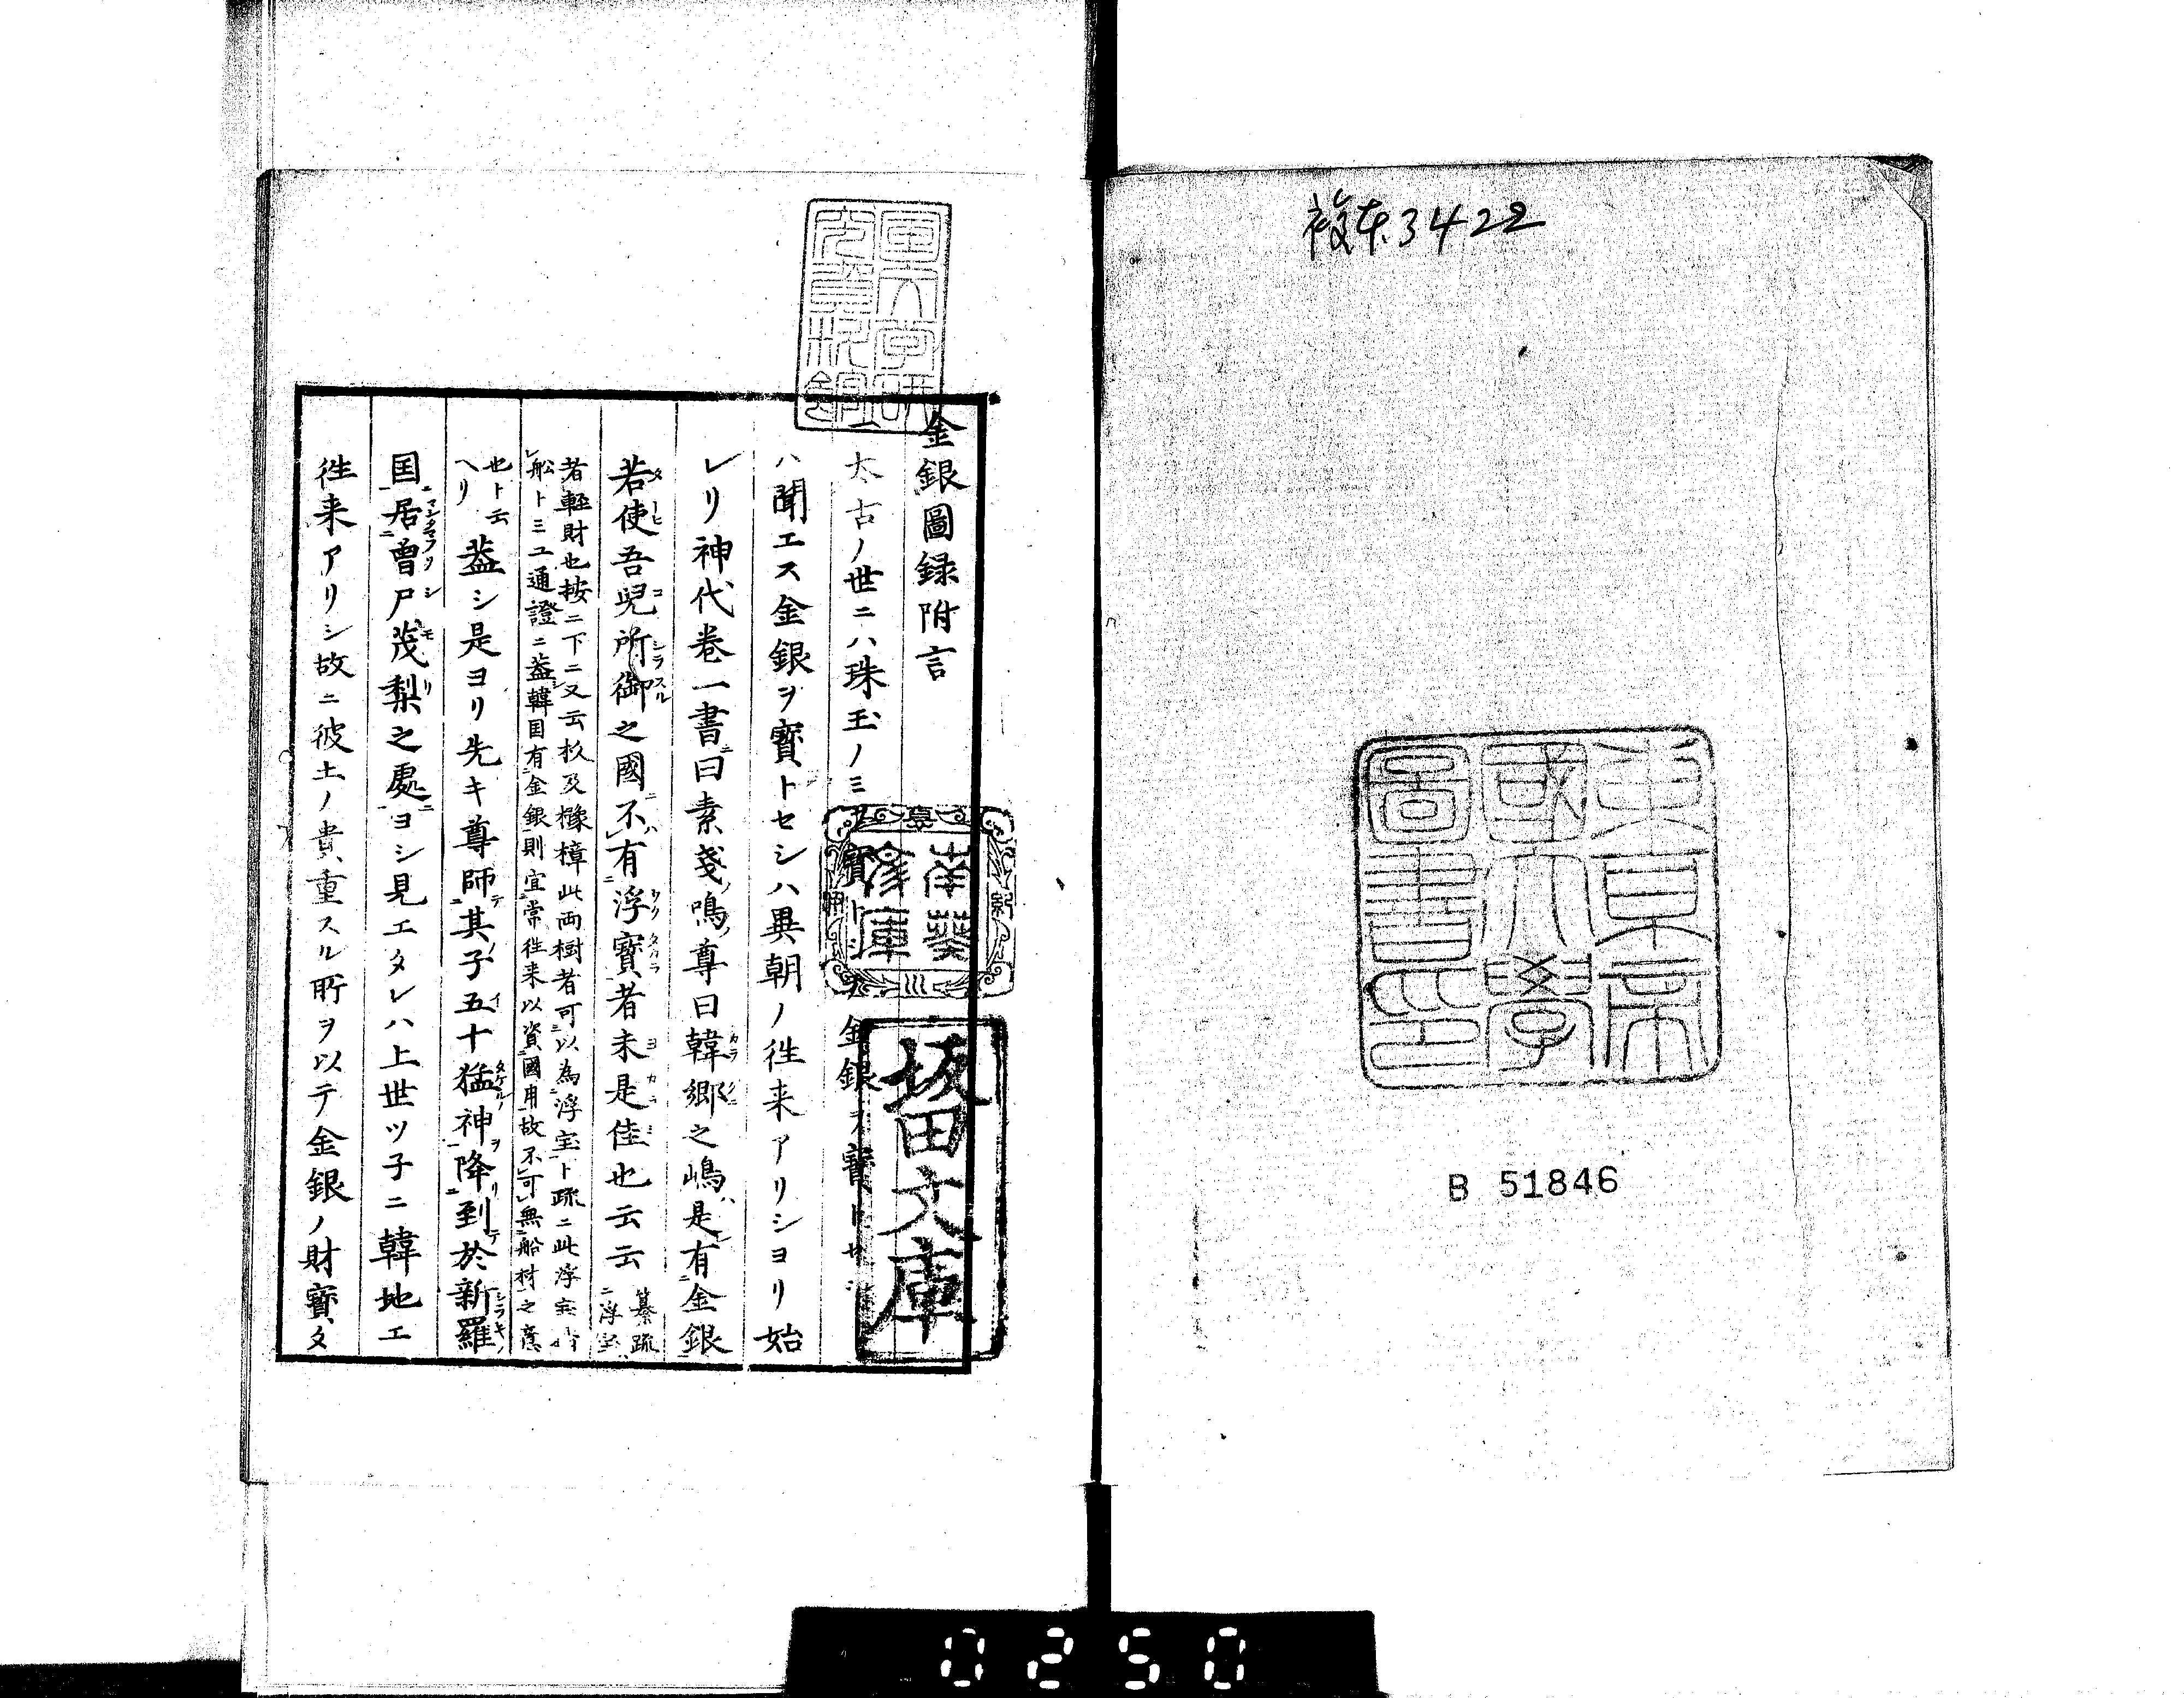 複本3422
東京帝
國大學
圖書印
B 51846
金銀圖録附言
太古ノ世ニハ珠玉ノミ寶トシ金銀ヲ寶トセシ
ハ聞エス金銀ヲ寳トセシハ異朝ノ徃来アリシヨリ始
レリ神代巻一書曰素戔嗚尊曰韓郷之嶋是有金銀
若使吾兒所御之國不有浮寳者未是佳也云云
纂疏ニ浮宝
者輕財也按ニ下ニ又云杦及櫲樟此両樹者可以為浮宝ト疏ニ此浮宝
舩ト三ユ通證ニ蓋韓国有金銀則宜常徃来以資國用故不可無船材之意
也ト云ヘリ
蓋シ是ヨリ先キ尊師其子五十猛神降到於新羅
国居曽尸茂梨之處ヨシ見エタレハ上世ツ子ニ韓地エ
徃来アリシ故ニ彼土ノ貴重スル所ヲ以テ金銀ノ財寳タ
南葵
文庫
坂田文庫
0250